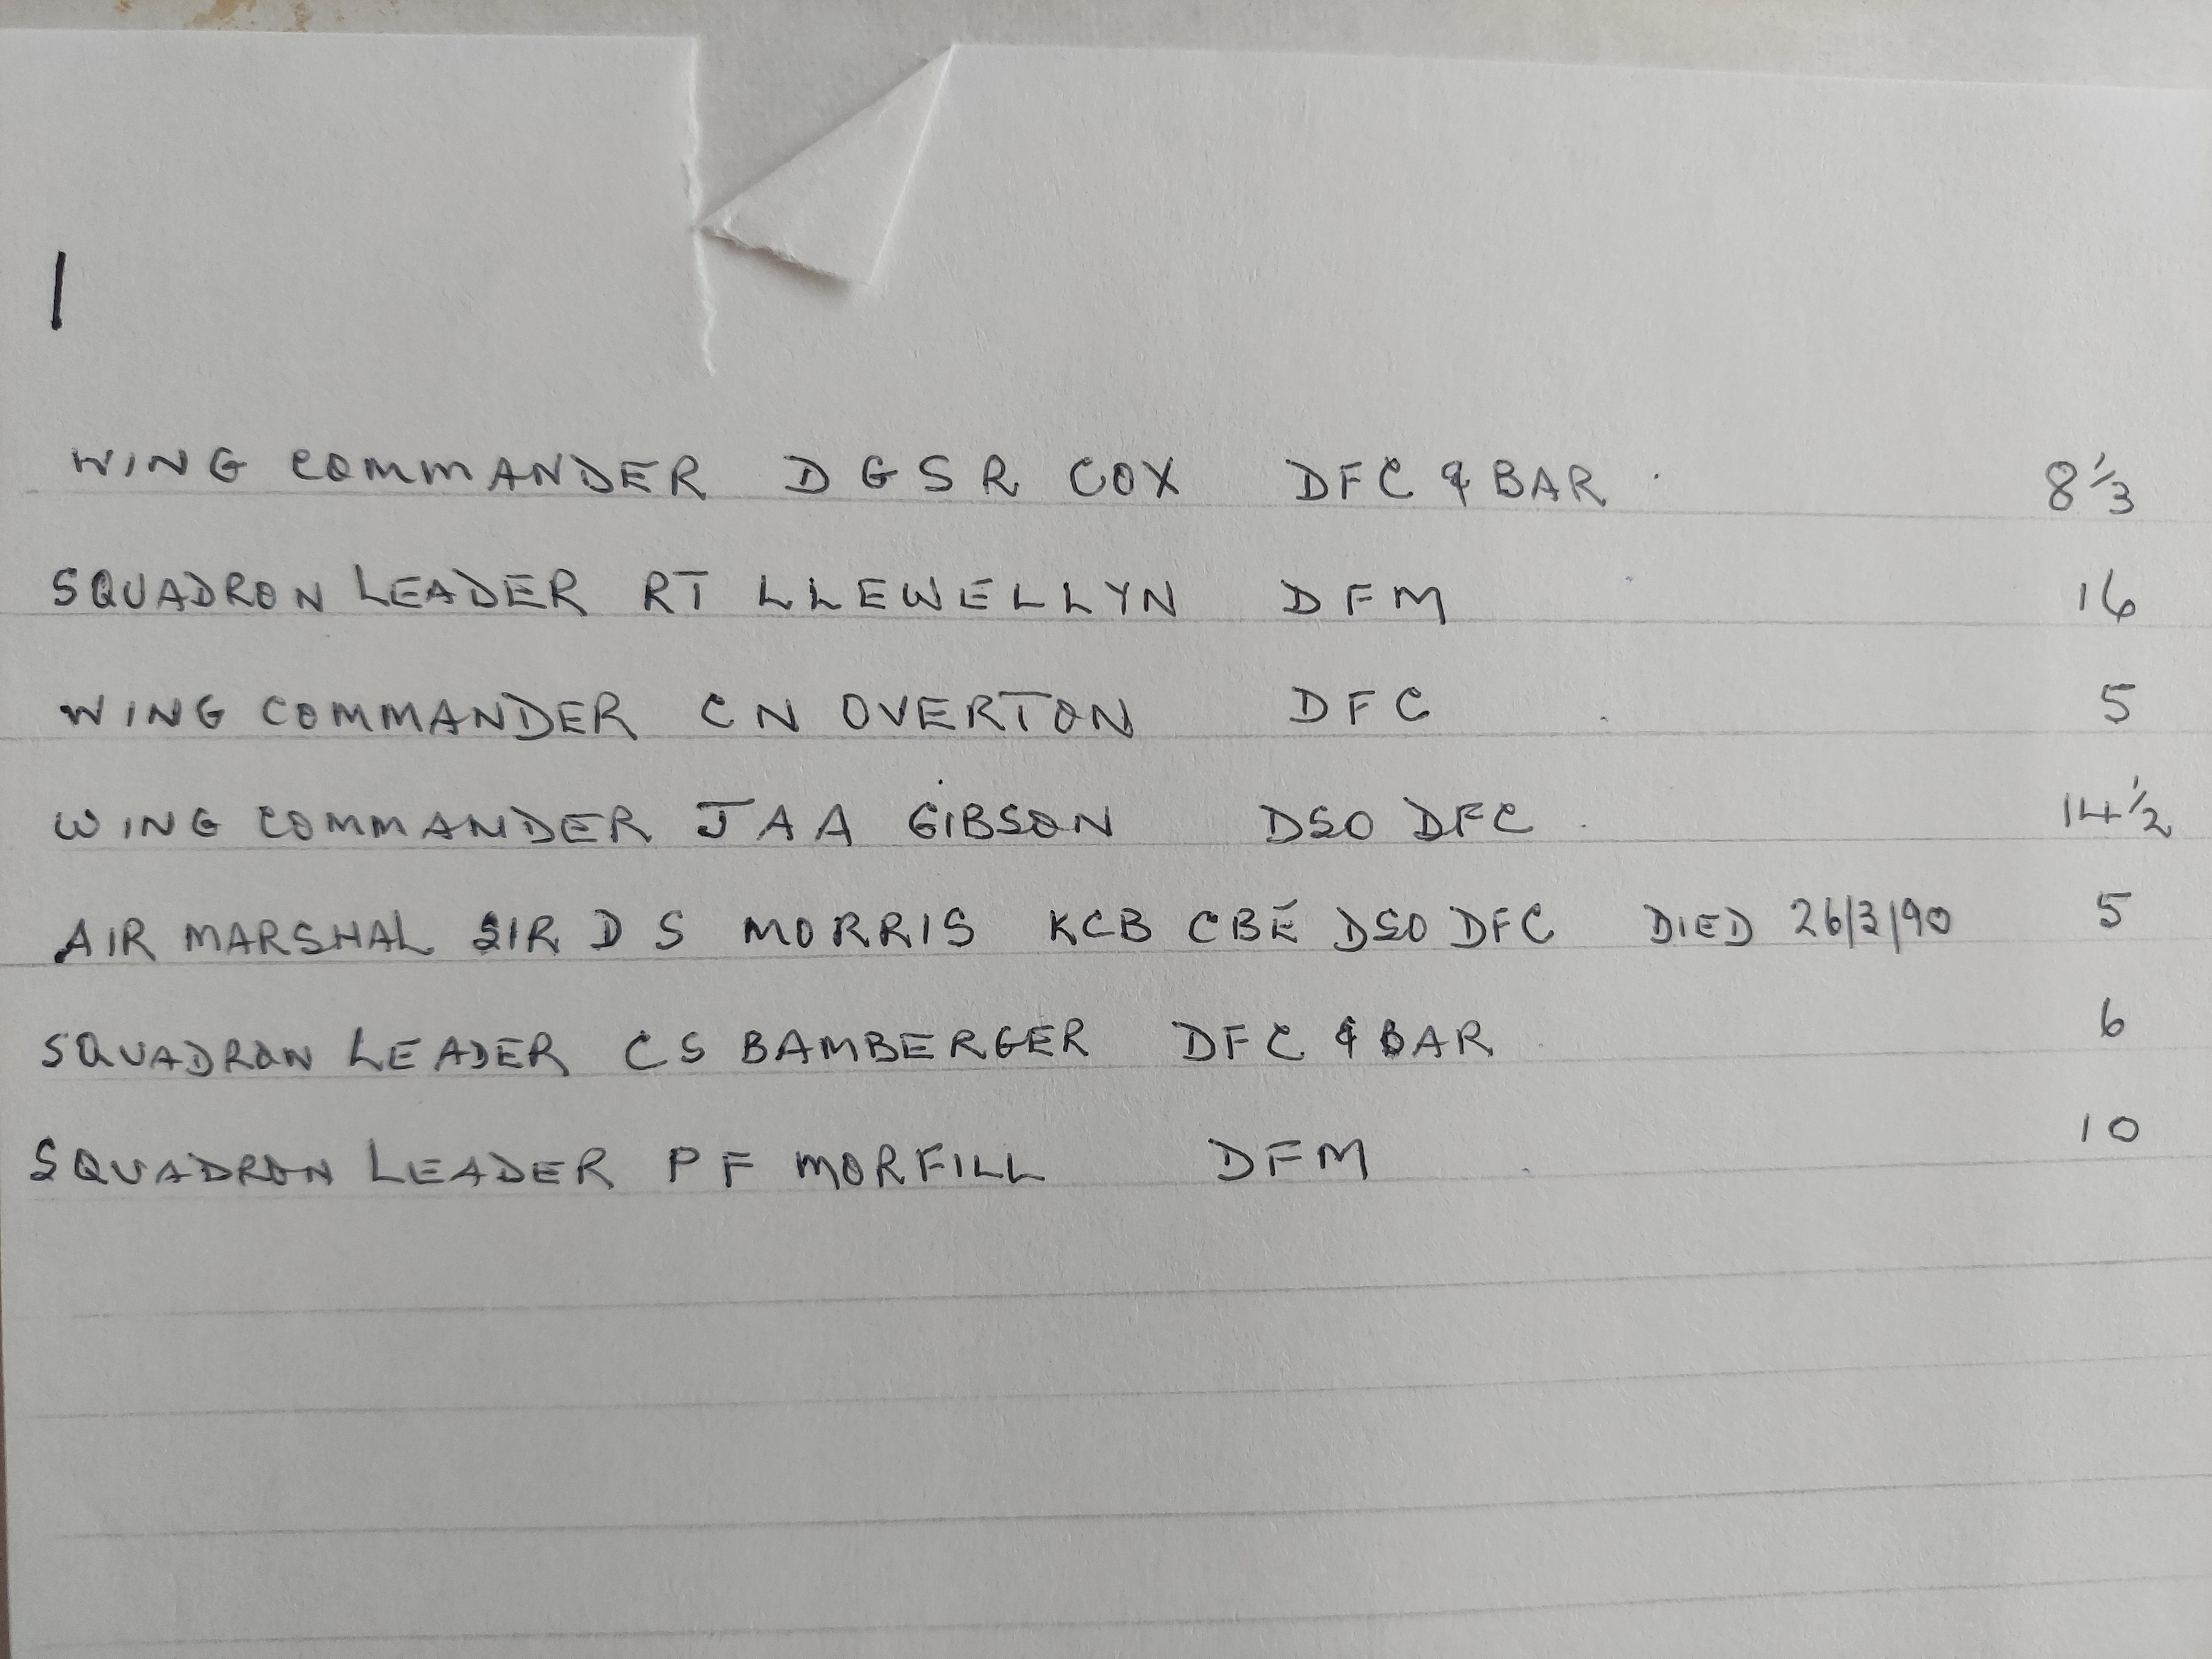 1
WING COMMANDER D G S R COX DFC & BAR 8 1/3
SQUADRON LEADER RT LLEWELLYN DFM 16
WING COMMANDER C N OVERTON DFC 5
WING COMMANDER J A A GIBSON DSO DFC 14 1/2
AIR MARSHAL SIR D S MORRIS KCB CBE DSO DFC DIED 26/3/90 5
SQUADRON LEADER CS BAMBERGER DFC & BAR 6
SQUADRON LEADER P F MORFILL DFM 10